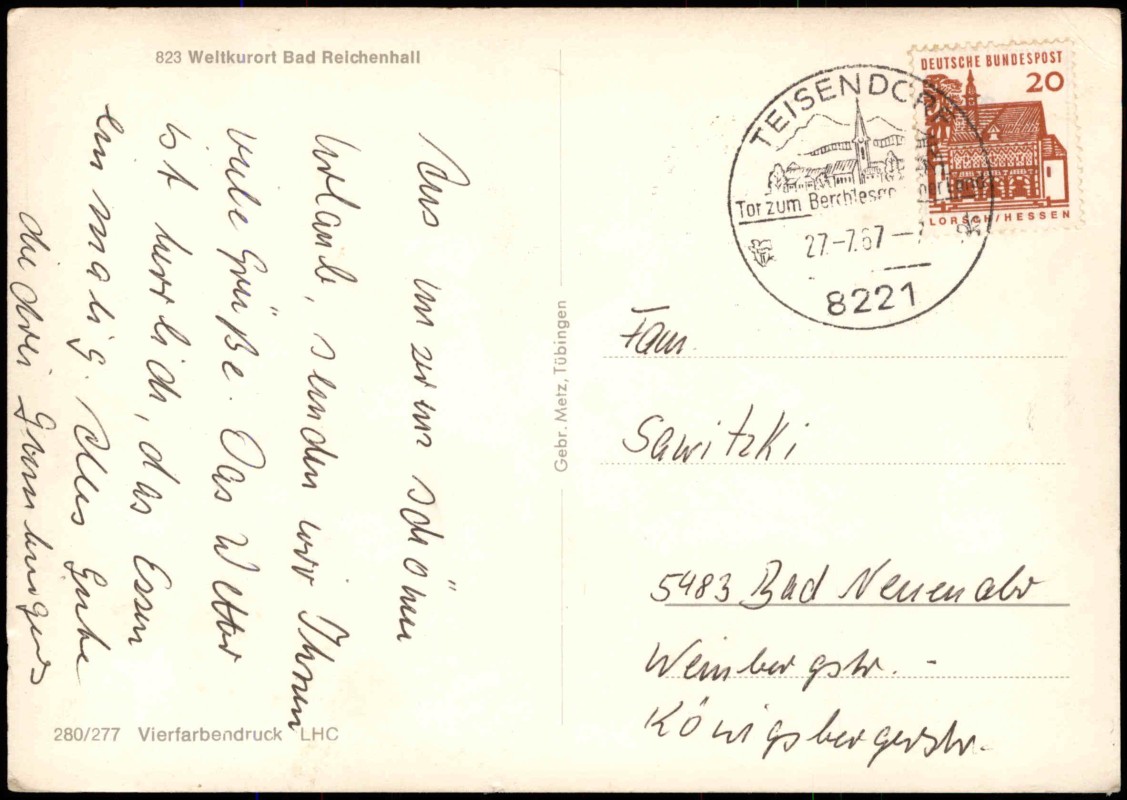 823 Weltkurort Bad Reichenhall
Aus unserm schönen
Urlaub, senden wir Ihnen
viele Grüße. Das Wetter
ist herrlich, das Essen
einmalig. Alles Gute
die drei
280/277 Vierfarbendruck LHC
Gebr. Metz, Tübingen
TEISENDORF
Tor zum Berchtesgadener Land
27.-7.67--7
8221
DEUTSCHE BUNDESPOST
20
LORSCH/HESSEN
Fam.
Sawitzki
5483 Bad Neuenahr
Weinbergstr. -
Königsbergerstr.